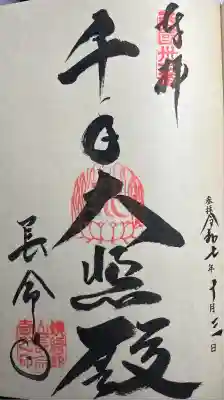 奉拝
西国卅一番
千手大悲殿
長命寺
令和七年十月三日